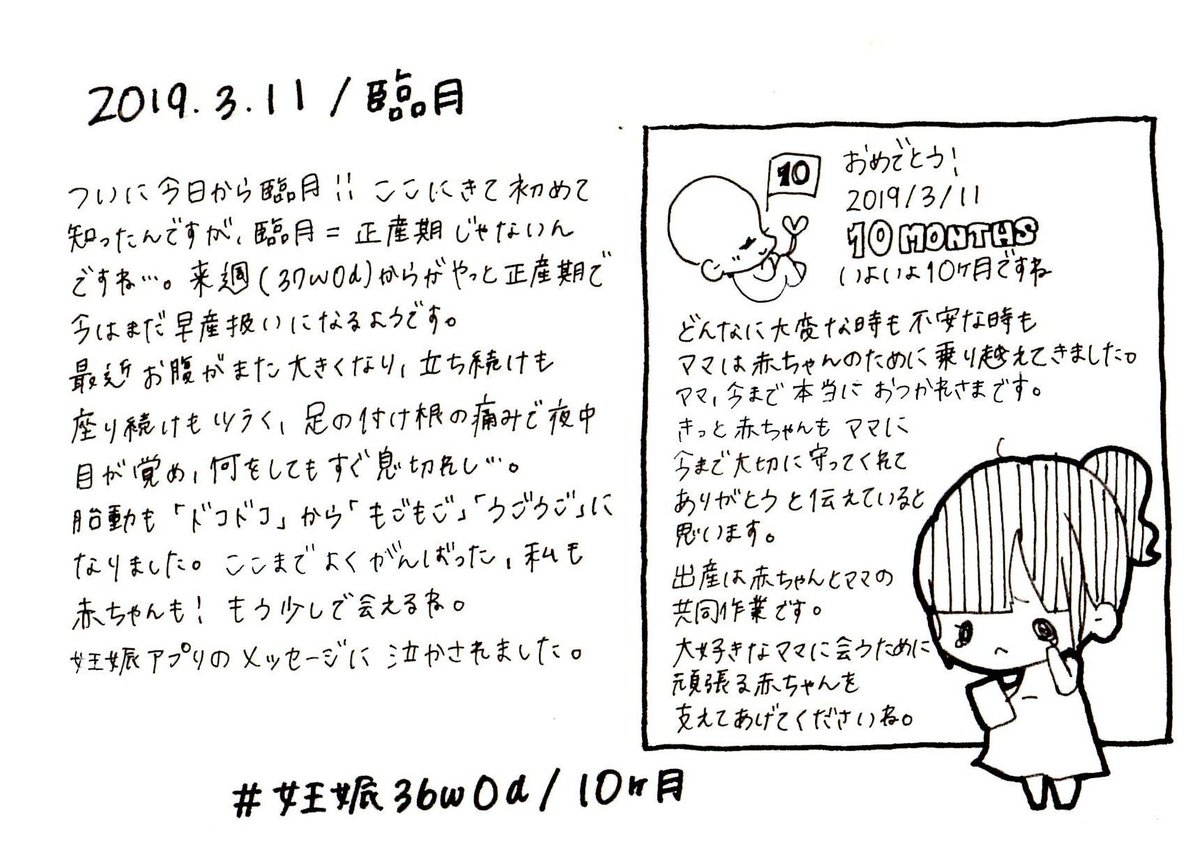 2019.3.11/臨月
ついに今日から臨月!! ここにきて初めて
知ったんですが、臨月=正産期じゃないん
ですね…。来週(37w0d)からがやっと正産期で
今はまだ早産扱いになるようです。
最近お腹がまた大きくなり、立ち続けも
座り続けもツラく、足の付け根の痛みで夜中
目が覚め、何をしてもすぐ息切れし…。
胎動も「ドコドコ」から「もごもご」「うごうご」に
なりました。ここまでよくがんばった、私も
赤ちゃんも!もう少しで会えるね。
妊娠アプリのメッセージに泣かされました。
10
おめでとう!
2019/3/11
10 MONTHS
いよいよ10ヶ月ですね
どんなに大変な時も不安な時も
ママは赤ちゃんのために乗り越えてきました。
ママ、今まで本当におつかれさまです。
きっと赤ちゃんもママに
今まで大切に守ってくれて
ありがとうと伝えていると
思います。
出産は赤ちゃんとママの
共同作業です。
大好きなママに会うために
頑張る赤ちゃんを
支えてあげてくださいね。
#妊娠36w0d/10ヶ月